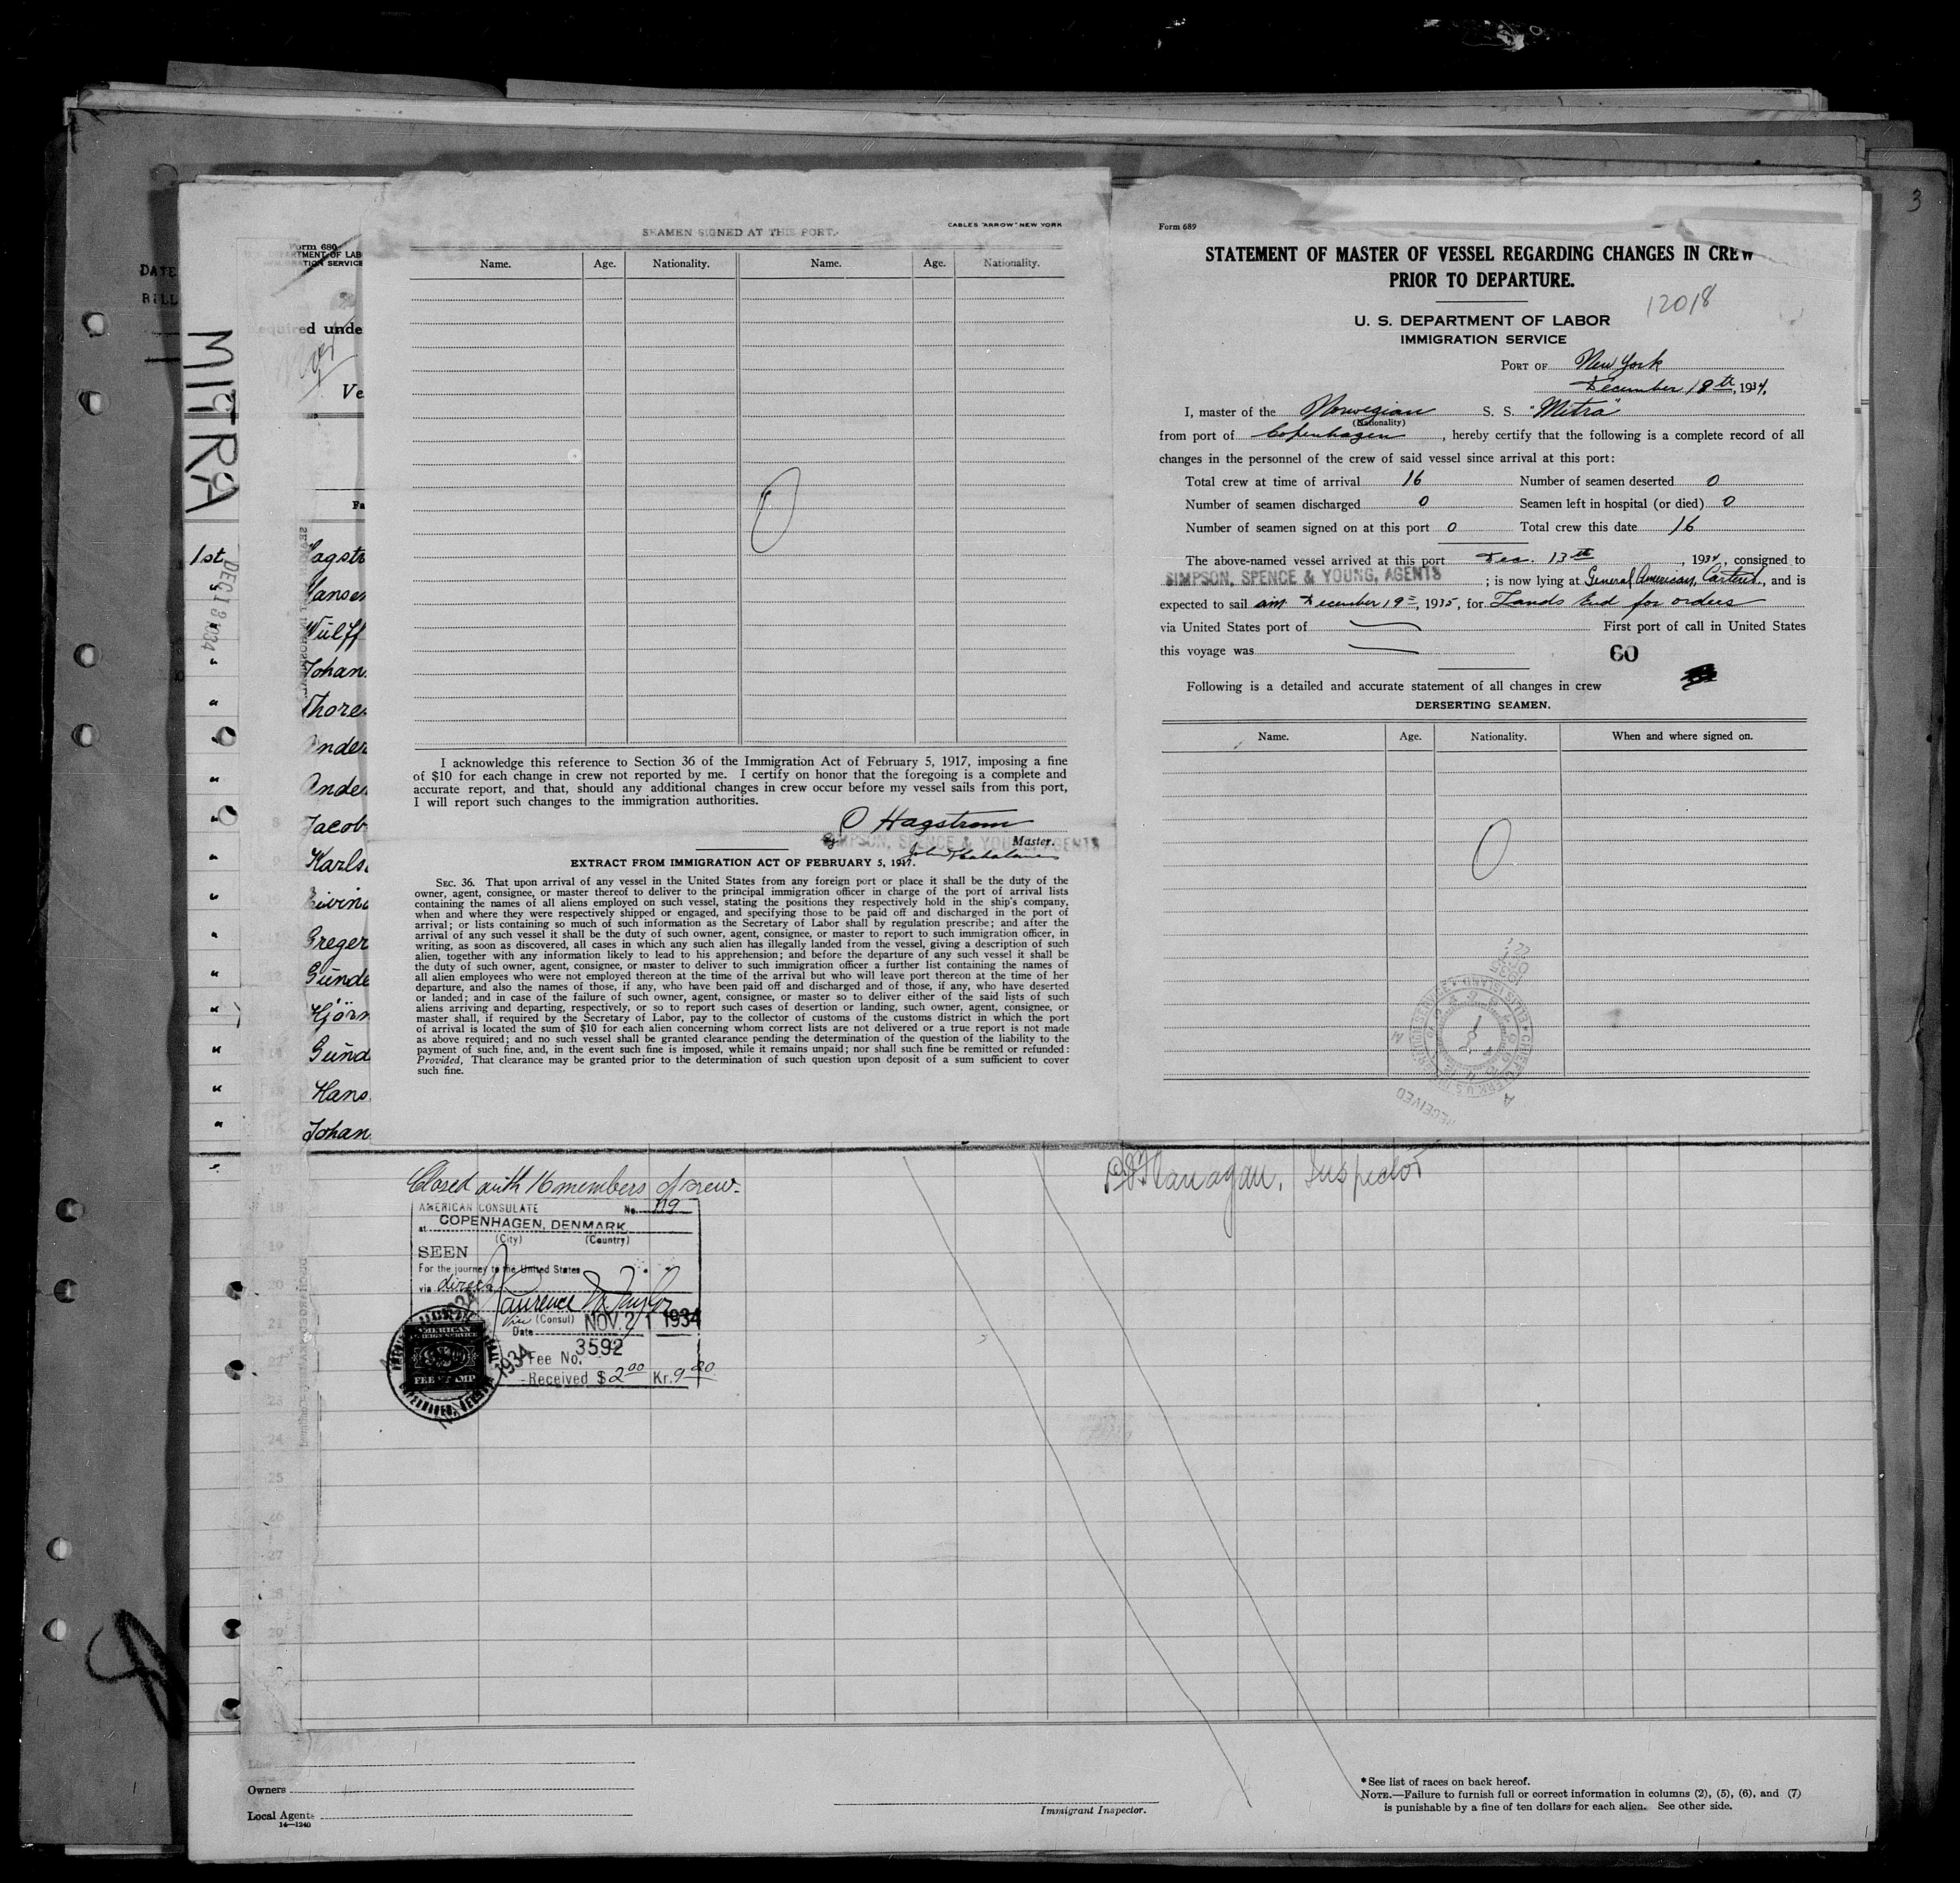 3
DATE
BILL
MITRA
1st
DEC 13 1934
Form 680
DEPARTMENT OF LAB
IMMIGRATION SERVICE
Required unde
Ve
Fa
Hagstr
Hansen
Wülff
Johan
Thore
Ander
Ande
Jacob
Karls
Eivind
Greger
Günde
Hjörn
Günd
Hans
Johan
SEAMEN SIGNED AT THIS PORT.
CABLES "ARROW" NEW YORK
Name. Age. Nationality. Name. Age. Nationality.
0
I acknowledge this reference to Section 36 of the Immigration Act of February 5, 1917, imposing a fine
of $10 for each change in crew not reported by me. I certify on honor that the foregoing is a complete and
accurate report, and that, should any additional changes in crew occur before my vessel sails from this port,
I will report such changes to the immigration authorities.
O Hagstrom
Master.
By SIMPSON, SPENCE & YOUNG, AGENTS
EXTRACT FROM IMMIGRATION ACT OF FEBRUARY 5, 1917.
SEC. 36. That upon arrival of any vessel in the United States from any foreign port or place it shall be the duty of the
owner, agent, consignee, or master thereof to deliver to the principal immigration officer in charge of the port of arrival lists
containing the names of all aliens employed on such vessel, stating the positions they respectively hold in the ship's company,
when and where they were respectively shipped or engaged, and specifying those to be paid off and discharged in the port of
arrival; or lists containing so much of such information as the Secretary of Labor shall by regulation prescribe; and after the
arrival of any such vessel it shall be the duty of such owner, agent, consignee, or master to report to such immigration officer, in
writing, as soon as discovered, all cases in which any such alien has illegally landed from the vessel, giving a description of such
alien, together with any information likely to lead to his apprehension; and before the departure of any such vessel it shall be
the duty of such owner, agent, consignee, or master to deliver to such immigration officer a further list containing the names of
all alien employees who were not employed thereon at the time of the arrival but who will leave port thereon at the time of her
departure, and also the names of those, if any, who have been paid off and discharged and of those, if any, who have deserted
or landed; and in case of the failure of such owner, agent, consignee, or master so to deliver either of the said lists of such
aliens arriving and departing, respectively, or so to report such cases of desertion or landing, such owner, agent, consignee, or
master shall, if required by the Secretary of Labor, pay to the collector of customs of the customs district in which the port
of arrival is located the sum of $10 for each alien concerning whom correct lists are not delivered or a true report is not made
as above required; and no such vessel shall be granted clearance pending the determination of the question of the liability to the
payment of such fine, and, in the event such fine is imposed, while it remains unpaid; nor shall such fine be remitted or refunded:
Provided, That clearance may be granted prior to the determination of such question upon deposit of a sum sufficient to cover
such fine.
Form 689
STATEMENT OF MASTER OF VESSEL REGARDING CHANGES IN CREW
PRIOR TO DEPARTURE.
12018
U. S. DEPARTMENT OF LABOR
IMMIGRATION SERVICE
PORT OF New York
December 18th, 1934.
I, master of the Norwegian S. S. "Mitra"
(Nationality)
from port of Copenhagen, hereby certify that the following is a complete record of all
changes in the personnel of the crew of said vessel since arrival at this port:
Total crew at time of arrival 16 Number of seamen deserted 0
Number of seamen discharged 0 Seamen left in hospital (or died) 0
Number of seamen signed on at this port 0 Total crew this date 16
The above-named vessel arrived at this port Dec. 13th, 1934, consigned to
SIMPSON, SPENCE & YOUNG, AGENTS; is now lying at General American, Carteret, and is
expected to sail am December 19th, 1935, for Lands End for orders
via United States port of First port of call in United States
this voyage was
60
Following is a detailed and accurate statement of all changes in crew
DERSERTING SEAMEN.
Name. Age. Nationality. When and where signed on.
0
RECEIVED
Closed with 16 members of crew.
Flanagan, Inspector
AMERICAN CONSULATE No. 119
at COPENHAGEN, DENMARK
(City) (Country)
SEEN
For the journey to the United States
via direct
Laurence W Taylor
Vice (Consul)
Date NOV. 21 1934
Fee No. 3592
Received $2.00 Kr. 9.20
AMERICAN
FOREIGN SERVICE
FEE STAMP
17
18
19
20
21
22
23
24
25
26
27
28
29
Line
Owners
Local Agents
14—1240
Immigrant Inspector.
*See list of races on back hereof.
NOTE.—Failure to furnish full or correct information in columns (2), (5), (6), and (7)
is punishable by a fine of ten dollars for each alien. See other side.